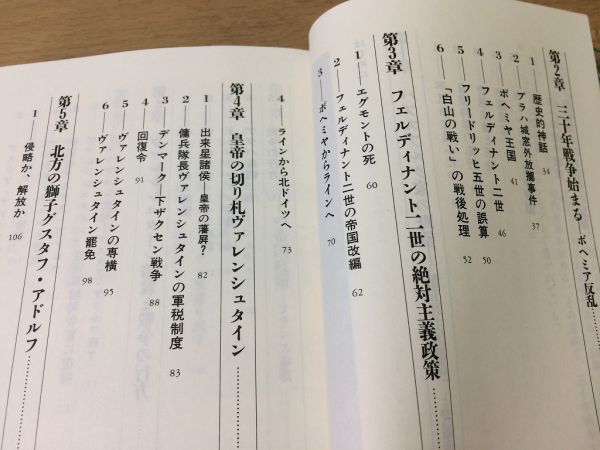 第2章 三十年戦争始まる ボヘミア反乱……
1 歴史的神話 34
2 プラハ城窓外放擲事件 37
3 ボヘミヤ王国 41
4 フェルディナント二世 46
5 フリードリッヒ五世の誤算 50
6 「白山の戦い」の戦後処理 52
第3章 フェルディナント二世の絶対主義政策……
1 エグモントの死 60
2 フェルディナント二世の帝国改編 62
3 ボヘミヤからラインへ 70
4 ラインから北ドイツへ 73
第4章 皇帝の切り札ヴァレンシュタイン……
1 出来星諸侯―皇帝の藩屏? 82
2 傭兵隊長ヴァレンシュタインの軍税制度 83
3 デンマーク―下ザクセン戦争 88
4 回復令 91
5 ヴァレンシュタインの専横 95
6 ヴァレンシュタイン罷免 98
第5章 北方の獅子グスタフ・アドルフ……
1 侵略か、解放か 106